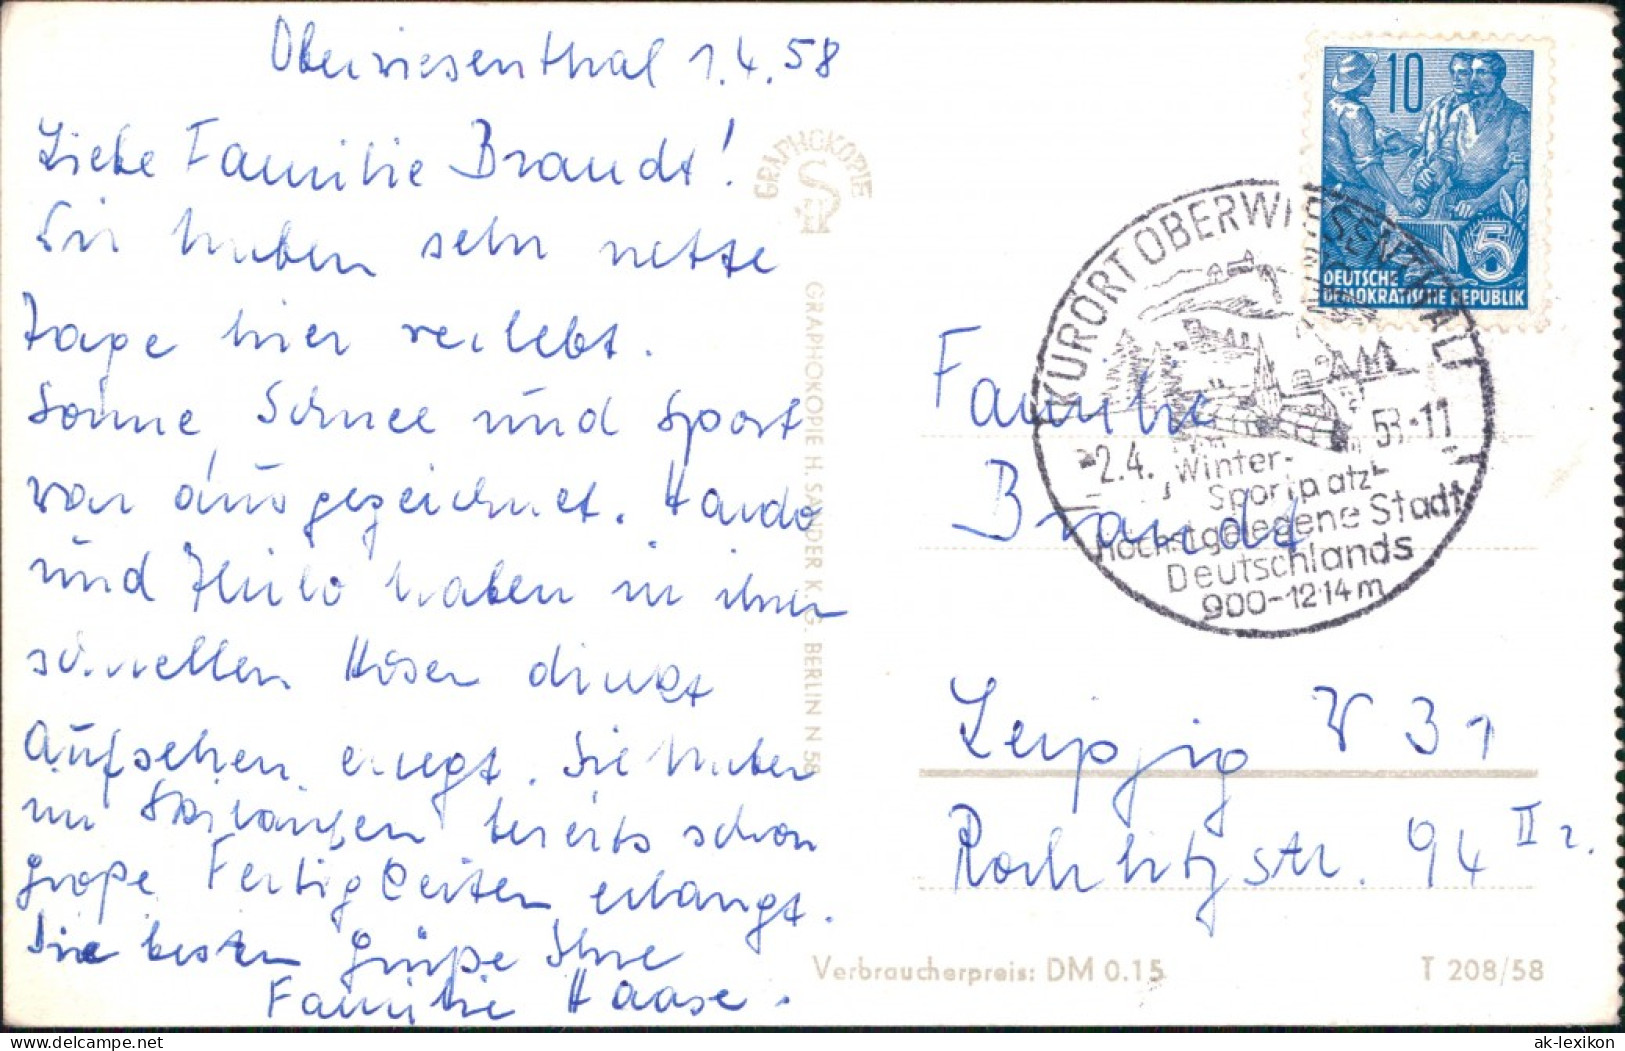 Oberwiesenthal 1.4.58
Liebe Familie Brandt!
Wir haben sehr nette
Tage hier verlebt.
Sonne, Schnee und Sport
war ausgezeichnet. Haido
und Thilo haben in ihren
schnellen Hosen direkt
Aufsehen erregt. Sie haben
im Skilaufen bereits schon
große Fertigkeiten erlangt.
Die besten Grüße Ihre
Familie Haase.
GRAPHOKOPIE
GRAPHOKOPIE H. SANDER K.G. BERLIN N 58
10
5
DEUTSCHE
DEMOKRATISCHE REPUBLIK
KURORT OBERWIESENTHAL
-2.4. 58.-11
Winter-
Sportplatz
Höchstgelegene Stadt
Deutschlands
900-1214m
Familie
Brandt
Leipzig W 31
Rochlitzstr. 94 II r.
Verbraucherpreis: DM 0.15
T 208/58
ak-lexikon.de
ak-lexikon